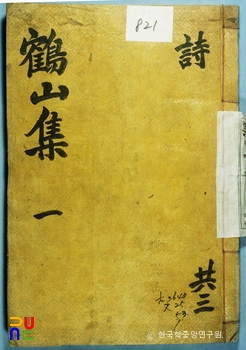 821
詩
鶴山集 一
共三
한국학중앙연구원